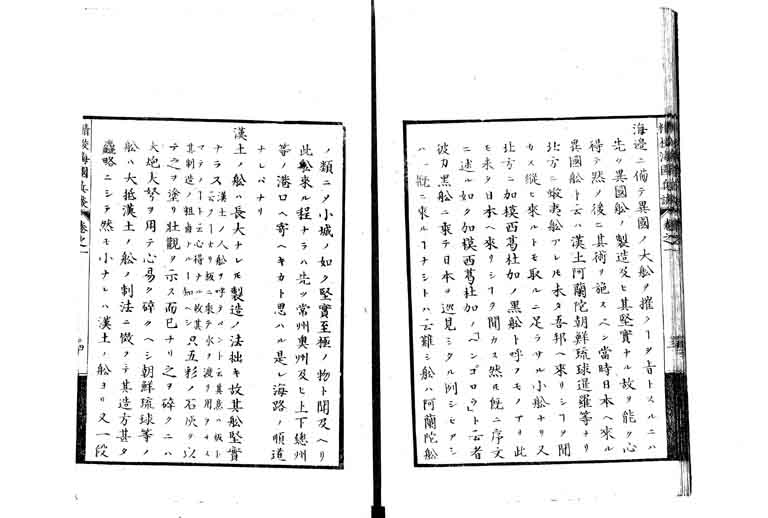 海邊ニ備テ異國ノ大舩ヲ摧クヿヲ旨トスルニハ
先ツ異國舩ノ製造及ヒ其堅實ナル故ヲ能ク心
得テ然ノ後ニ其術ヲ施スヘシ當時日本ヘ來ル
異國舩ト云ハ漢土阿蘭陀朝鮮琉球暹羅等ナリ
北方ニ蝦夷舩アレ𪜈未タ吾邦ヘ來リシヿヲ聞
カス縱ヒ來ル𪜈取ルニ足ラサル小舩ナリ又
北方ニ加模西葛杜加ノ黒舩ト呼フモノアリ此
モ未タ日本ヘ來リシヿヲ聞カス然𪜈既ニ序文
ニ述ル如ク加模西葛杜加ノ「ベンゴロウ」ト云者
彼カ黒舩ニ乘テ日本ヲ巡見シタル例シモアレ
ハ一概ニ來ルヿナシトハ云難シ舩ハ阿蘭陀舩
ノ類ニ〆小城ノ如ク堅實至極ノ物ト聞及ヘリ
此舩來ル程ナラハ先ツ常州奥州及ヒ上下總州
等ノ港口ヘ寄ヘキカト思ハル是レ海路ノ順道
ナレバナリ
漢土ノ舩ハ長大ナレ𪜈製造ノ法拙キ故其舩堅實
ナラス
只五彩ノ石灰ヲ以
テ之ヲ塗リ壮觀ヲ示ス而已ナリ之ヲ碎クニハ
大炮大弩ヲ用テ心易ク碎クヘシ朝鮮琉球等ノ
舩ハ大抵漢土ノ舩ノ制法ニ微フテ其造方甚タ
麤略ニシテ然モ小ナレハ漢土ノ舩ヨリ又一段
精校海國兵談
卷之一